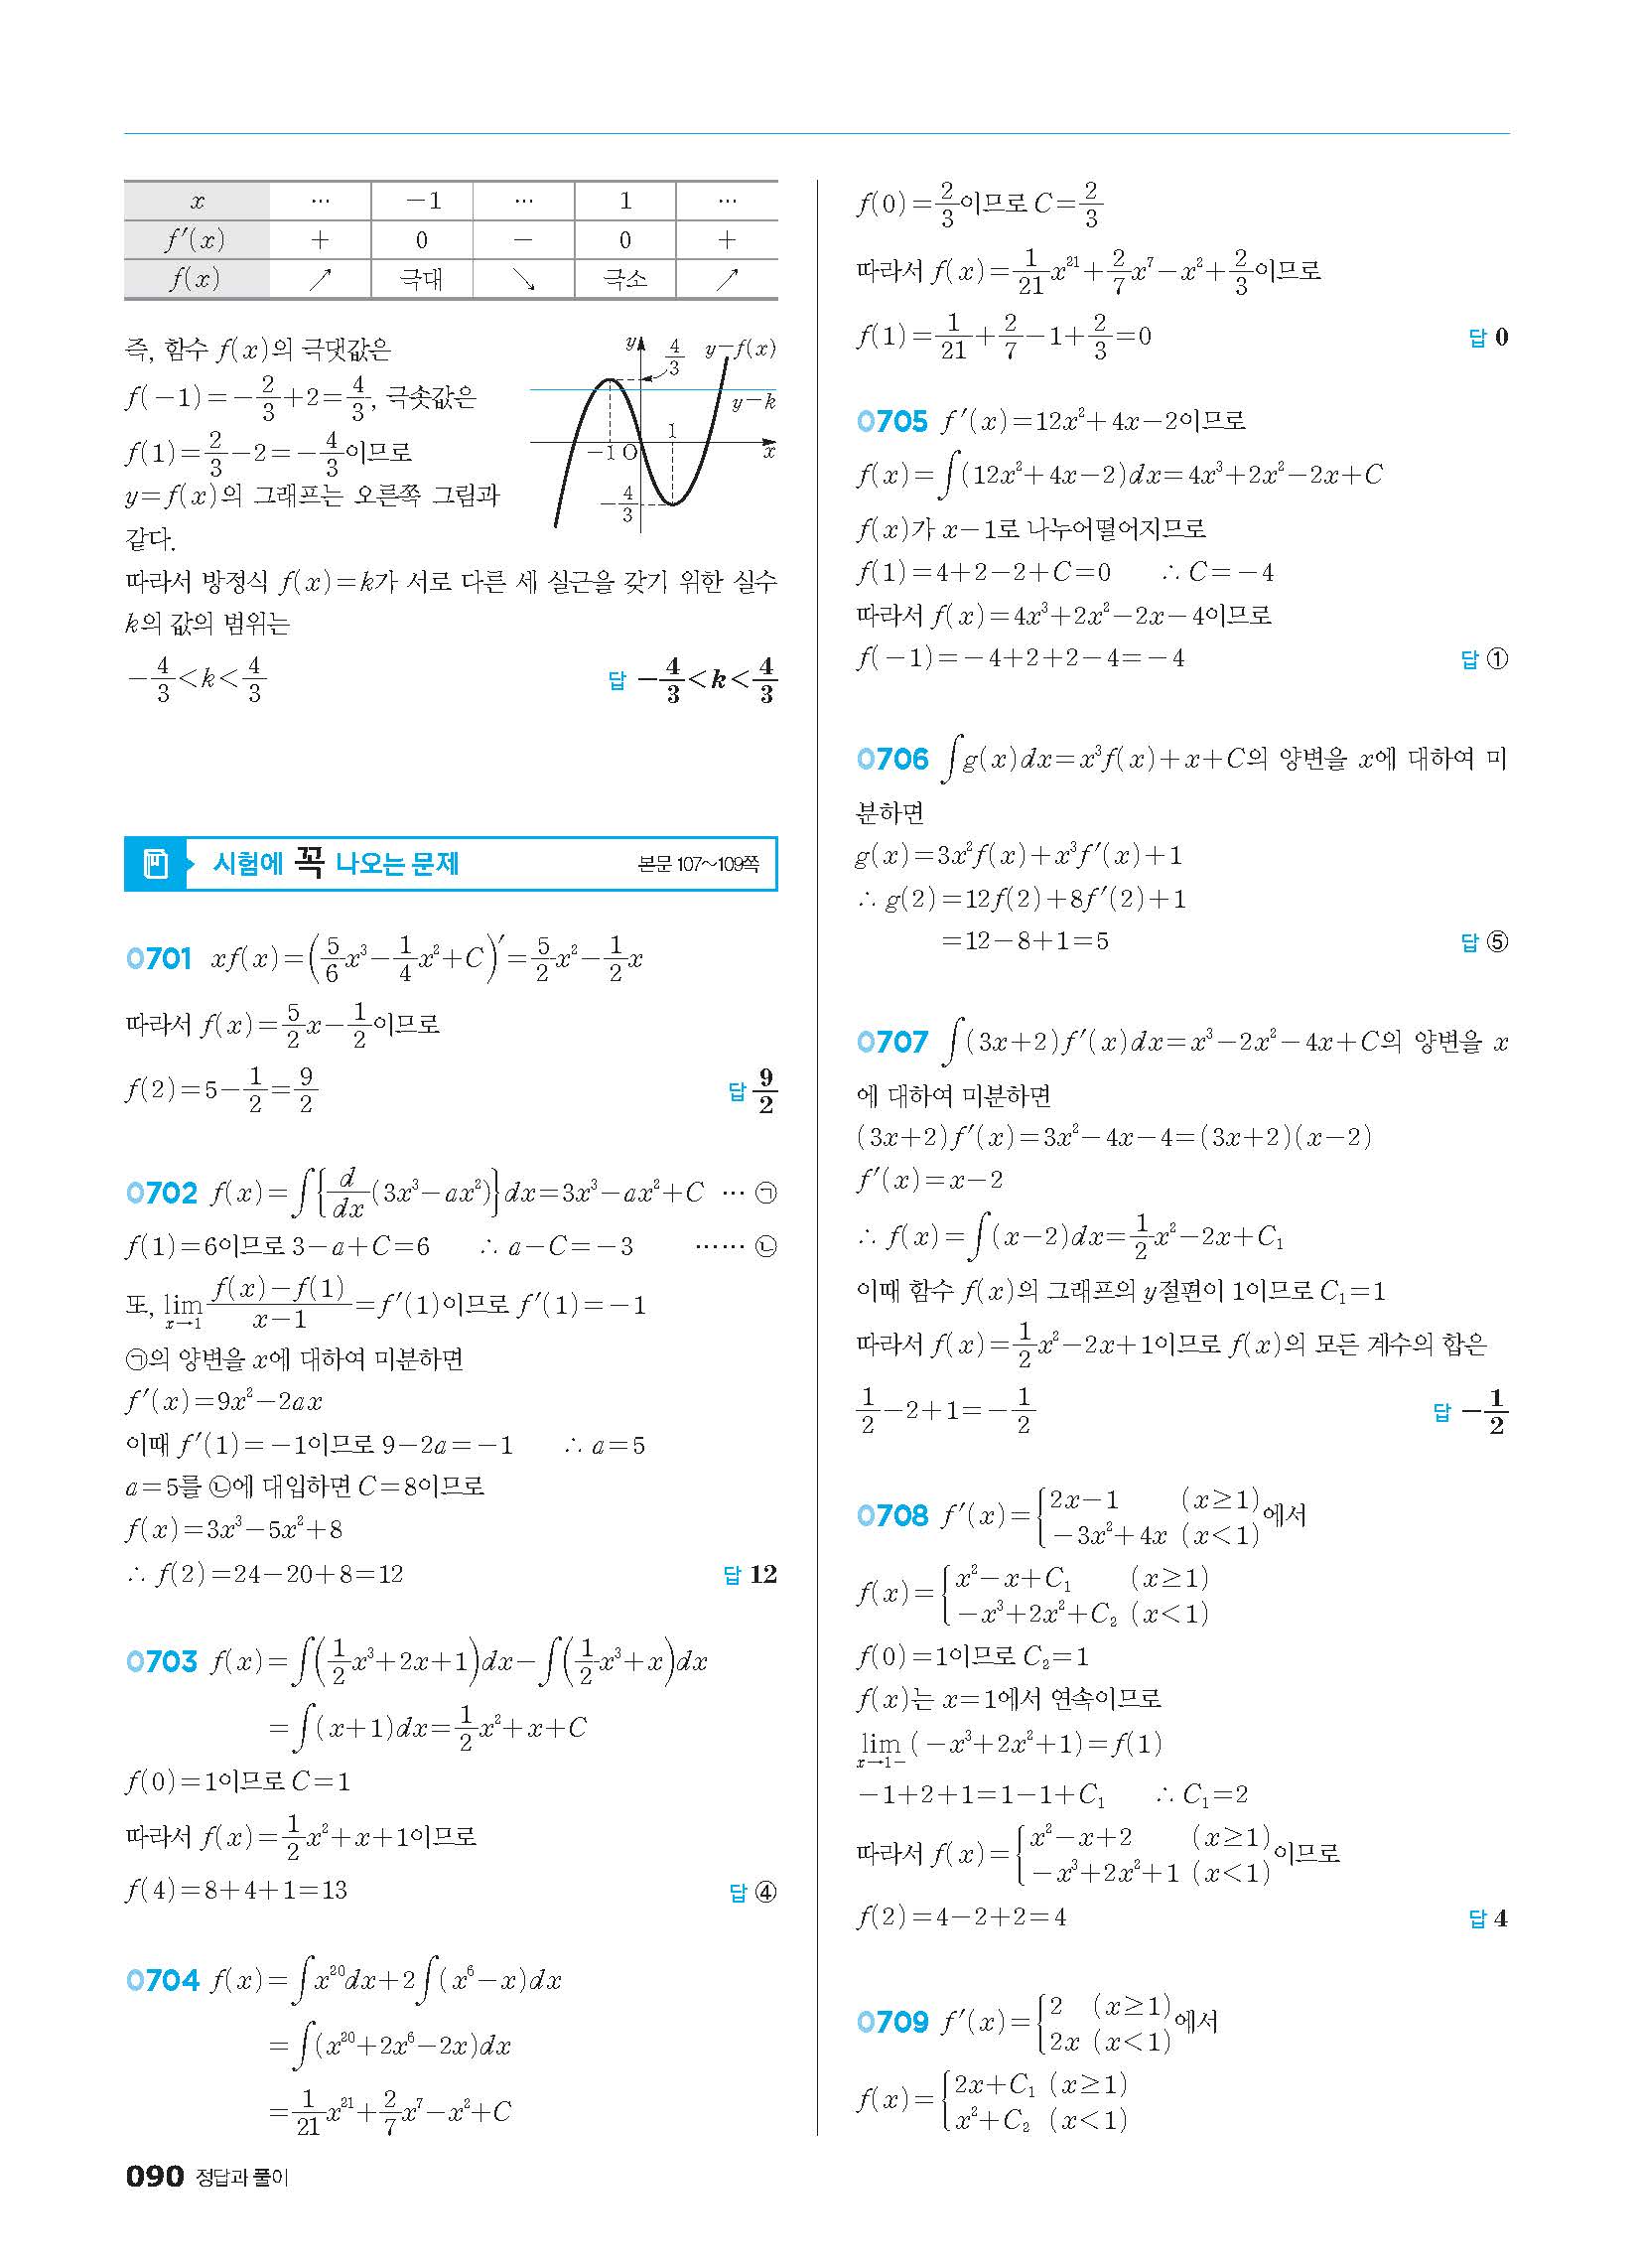 x … -1 … 1 …
f′(x) + 0 - 0 +
f(x) ↗ 극대 ↘ 극소 ↗
즉, 함수 f(x)의 극댓값은
f(-1)=-2/3+2=4/3, 극솟값은
f(1)=2/3-2=-4/3이므로
y=f(x)의 그래프는 오른쪽 그림과
같다.
y 4/3 y=f(x)
y=k
1
-1 O x
-4/3
따라서 방정식 f(x)=k가 서로 다른 세 실근을 갖기 위한 실수
k의 값의 범위는
-4/3<k<4/3 답 -4/3<k<4/3
시험에 꼭 나오는 문제 본문 107~109쪽
0701 xf(x)=(5/6x³-1/4x²+C)′=5/2x²-1/2x
따라서 f(x)=5/2x-1/2이므로
f(2)=5-1/2=9/2 답 9/2
0702 f(x)=∫{d/dx(3x³-ax²)}dx=3x³-ax²+C … ㉠
f(1)=6이므로 3-a+C=6 ∴ a-C=-3 …… ㉡
또, lim x→1 (f(x)-f(1))/(x-1)=f′(1)이므로 f′(1)=-1
㉠의 양변을 x에 대하여 미분하면
f′(x)=9x²-2ax
이때 f′(1)=-1이므로 9-2a=-1 ∴ a=5
a=5를 ㉡에 대입하면 C=8이므로
f(x)=3x³-5x²+8
∴ f(2)=24-20+8=12 답 12
0703 f(x)=∫(1/2x³+2x+1)dx-∫(1/2x³+x)dx
=∫(x+1)dx=1/2x²+x+C
f(0)=1이므로 C=1
따라서 f(x)=1/2x²+x+1이므로
f(4)=8+4+1=13 답 ④
0704 f(x)=∫x²⁰dx+2∫(x⁶-x)dx
=∫(x²⁰+2x⁶-2x)dx
=1/21x²¹+2/7x⁷-x²+C
f(0)=2/3이므로 C=2/3
따라서 f(x)=1/21x²¹+2/7x⁷-x²+2/3이므로
f(1)=1/21+2/7-1+2/3=0 답 0
0705 f′(x)=12x²+4x-2이므로
f(x)=∫(12x²+4x-2)dx=4x³+2x²-2x+C
f(x)가 x-1로 나누어떨어지므로
f(1)=4+2-2+C=0 ∴ C=-4
따라서 f(x)=4x³+2x²-2x-4이므로
f(-1)=-4+2+2-4=-4 답 ①
0706 ∫g(x)dx=x³f(x)+x+C의 양변을 x에 대하여 미
분하면
g(x)=3x²f(x)+x³f′(x)+1
∴ g(2)=12f(2)+8f′(2)+1
=12-8+1=5 답 ⑤
0707 ∫(3x+2)f′(x)dx=x³-2x²-4x+C의 양변을 x
에 대하여 미분하면
(3x+2)f′(x)=3x²-4x-4=(3x+2)(x-2)
f′(x)=x-2
∴ f(x)=∫(x-2)dx=1/2x²-2x+C₁
이때 함수 f(x)의 그래프의 y절편이 1이므로 C₁=1
따라서 f(x)=1/2x²-2x+1이므로 f(x)의 모든 계수의 합은
1/2-2+1=-1/2 답 -1/2
0708 f′(x)={2x-1 (x≥1)
-3x²+4x (x<1)에서
f(x)={x²-x+C₁ (x≥1)
-x³+2x²+C₂ (x<1)
f(0)=1이므로 C₂=1
f(x)는 x=1에서 연속이므로
lim x→1- (-x³+2x²+1)=f(1)
-1+2+1=1-1+C₁ ∴ C₁=2
따라서 f(x)={x²-x+2 (x≥1)
-x³+2x²+1 (x<1)이므로
f(2)=4-2+2=4 답 4
0709 f′(x)={2 (x≥1)
2x (x<1)에서
f(x)={2x+C₁ (x≥1)
x²+C₂ (x<1)
090 정답과 풀이